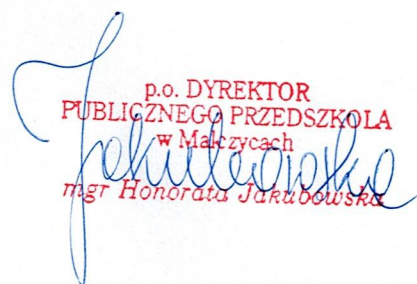 p.o. DYREKTOR
PUBLICZNEGO PRZEDSZKOLA
w Malczycach
mgr Honorata Jakubowska
Jakubowska